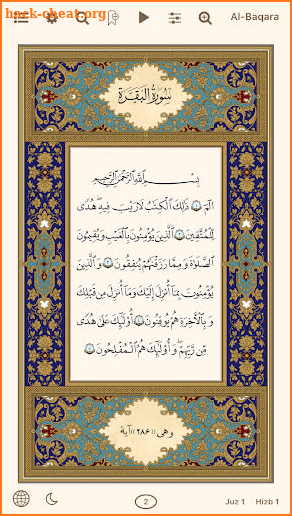 hack-cheat.org
Al-Baqara
سُورَةُ الْبَقَرَةِ
بِسْمِ اللَّهِ الرَّحْمَٰنِ الرَّحِيمِ
الٓمٓ ۝١ ذَٰلِكَ ٱلْكِتَٰبُ لَا رَيْبَ ۛ فِيهِ ۛ هُدًى
لِّلْمُتَّقِينَ ۝٢ ٱلَّذِينَ يُؤْمِنُونَ بِٱلْغَيْبِ وَيُقِيمُونَ
ٱلصَّلَوٰةَ وَمِمَّا رَزَقْنَٰهُمْ يُنفِقُونَ ۝٣ وَٱلَّذِينَ
يُؤْمِنُونَ بِمَآ أُنزِلَ إِلَيْكَ وَمَآ أُنزِلَ مِن قَبْلِكَ
وَبِٱلْءَاخِرَةِ هُمْ يُوقِنُونَ ۝٤ أُو۟لَٰٓئِكَ عَلَىٰ هُدًى
مِّن رَّبِّهِمْ ۖ وَأُو۟لَٰٓئِكَ هُمُ ٱلْمُفْلِحُونَ ۝٥
وهى «٢٨٦» آية
2
Juz 1 Hizb 1
hack-cheat.org